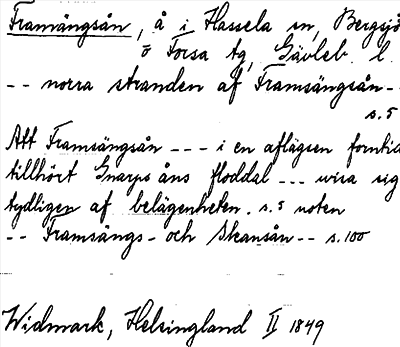 Framängsån, å i Hassela sn, Bergsjö
o Forsa tg, Gävleb. l.
-- norra stranden af Framsängsån--
s. 5
Att Framsängsån --- i en aflägsen forntid
tillhört Gnarps åns floddal --- visa sig
tydligen af belägenheten. s. 5 noten
-- Framsängs- och Skansån -- s. 100
Widmark, Helsingland II 1849